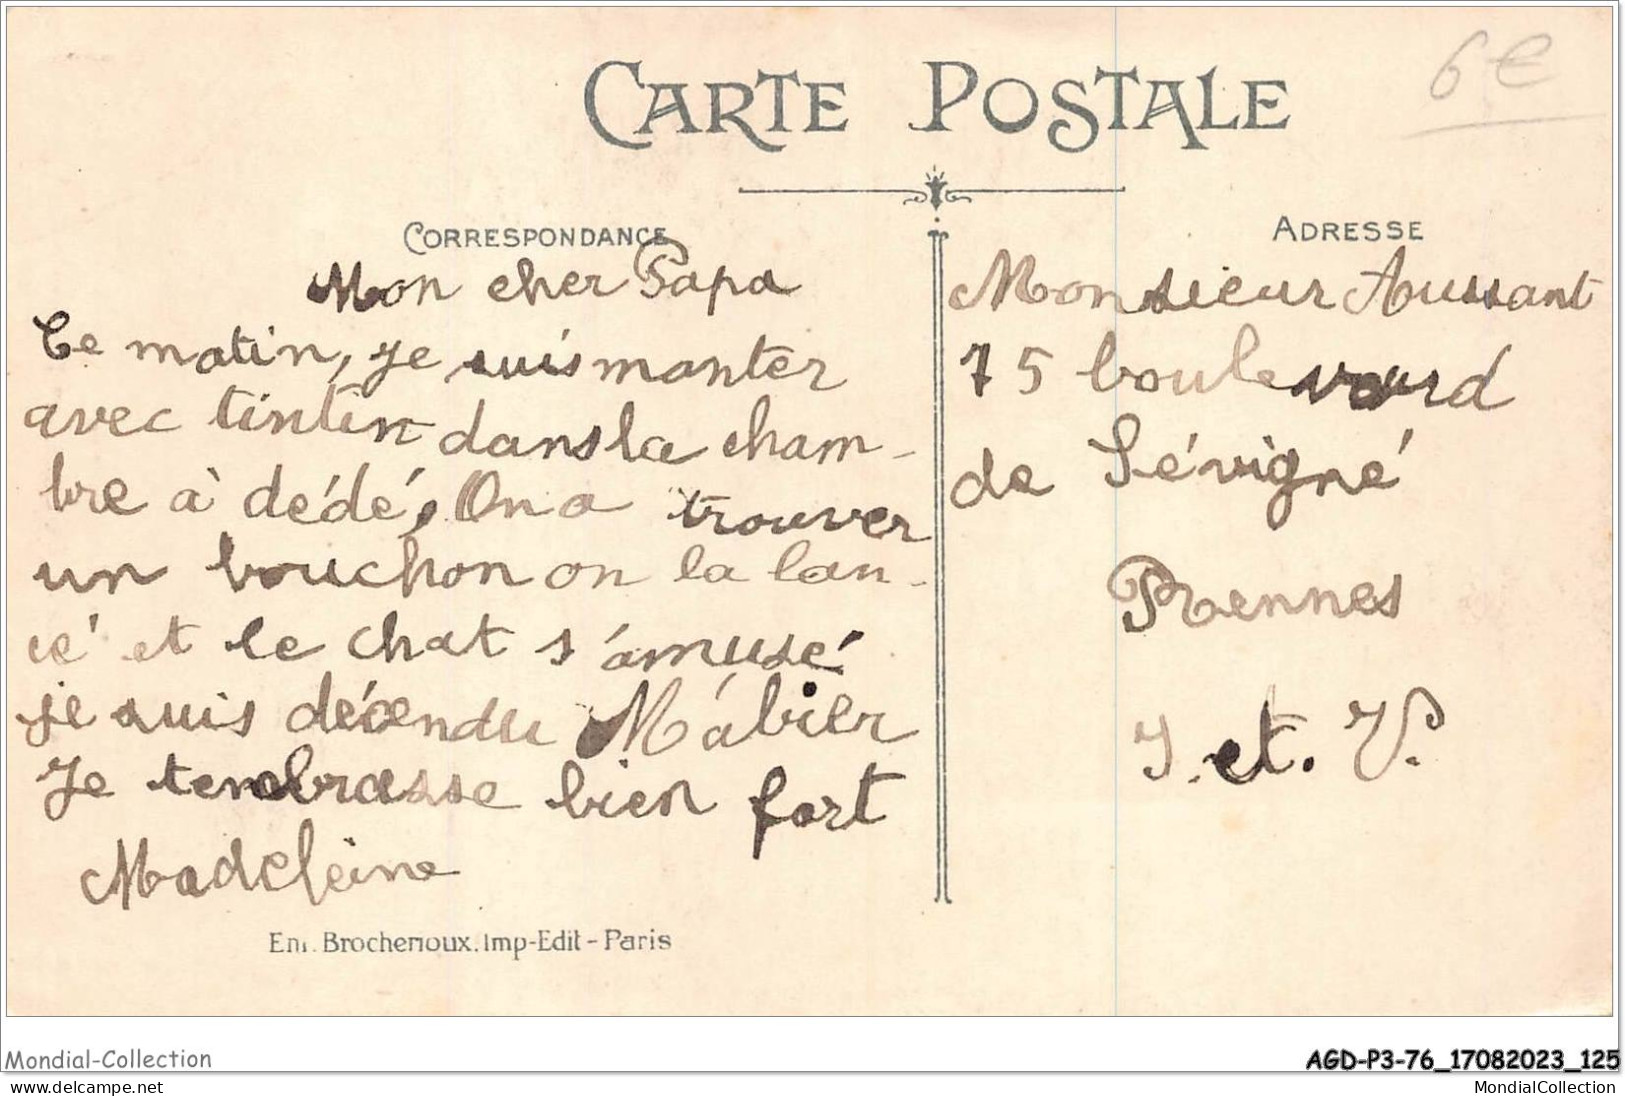 CARTE POSTALE
6€
CORRESPONDANCE
Mon cher Papa
Ce matin, je suis monter
avec tintin dans la cham-
bre à dédé, On a trouver
un bouchon on la lan-
cé et le chat s'amusé
je suis décendu M'abier
Je tenbrasse bien fort
Madeleine
Em. Brocherioux. Imp-Edit - Paris
ADRESSE
Monsieur Aussant
75 boulevard
de Sévigné
Rennes
I. et. V.
Mondial-Collection
AGD-P3-76_17082023_125
www.delcampe.net
MondialCollection